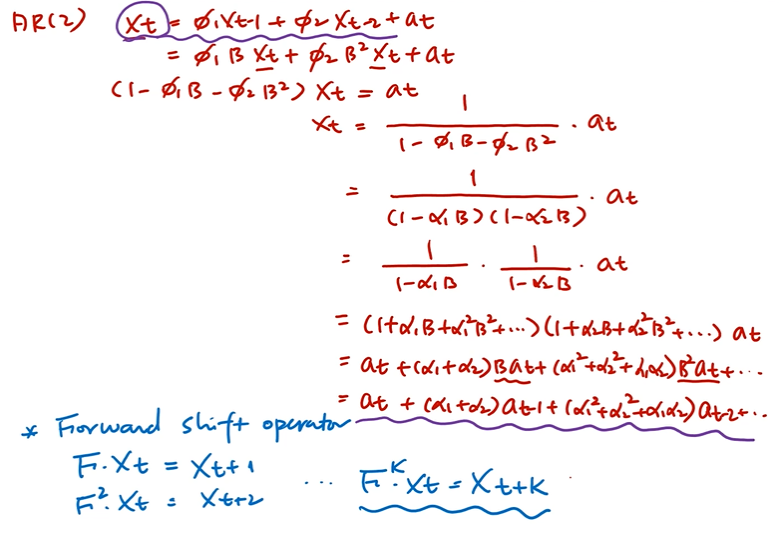 AR(2) Xt = ϕ₁Xt-1 + ϕ₂Xt-2 + at
= ϕ₁BXt + ϕ₂B²Xt + at
(1-ϕ₁B-ϕ₂B²)Xt = at
Xt = 1/(1-ϕ₁B-ϕ₂B²) · at
= 1/((1-α₁B)(1-α₂B)) · at
= 1/(1-α₁B) · 1/(1-α₂B) · at
= (1+α₁B+α₁²B²+...)(1+α₂B+α₂²B²+...) at
= at + (α₁+α₂)Bat + (α₁²+α₂²+α₁α₂)B²at + ...
= at + (α₁+α₂)at-1 + (α₁²+α₂²+α₁α₂)at-2 + ...
* Forward shift operator
F·Xt = Xt+1
F²·Xt = Xt+2 ... F^K·Xt = Xt+K